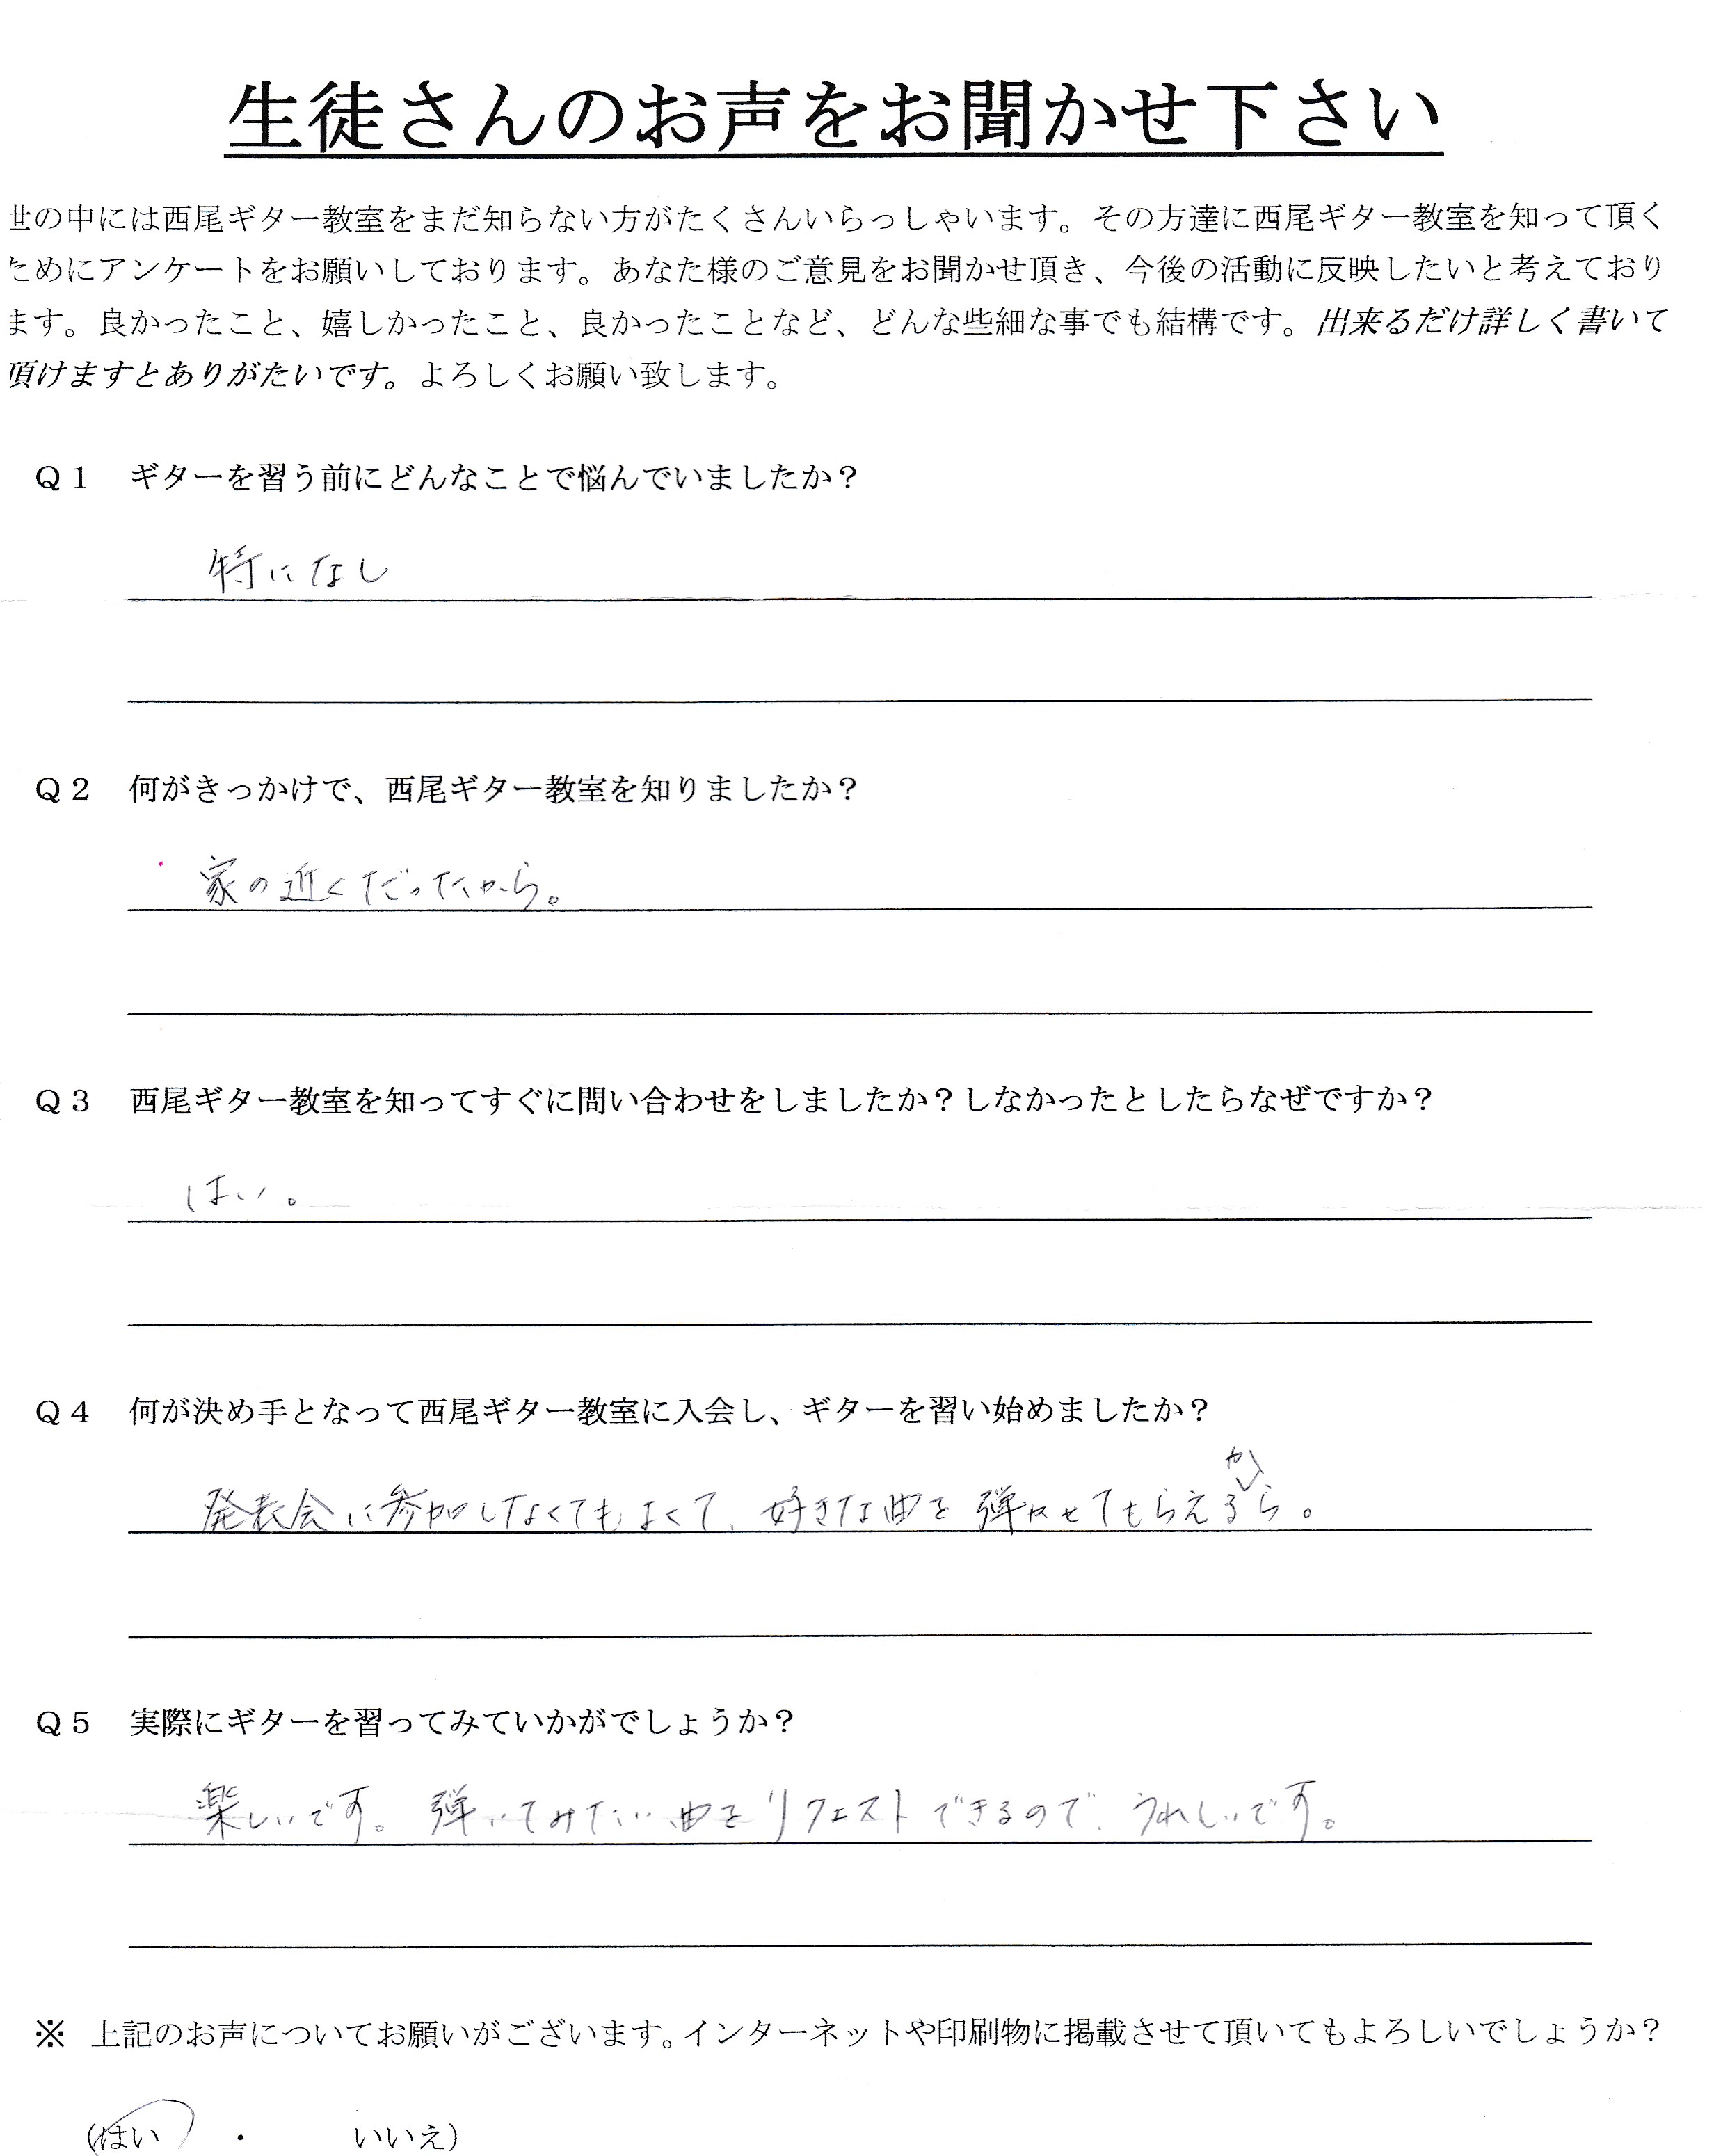 生徒さんのお声をお聞かせ下さい
世の中には西尾ギター教室をまだ知らない方がたくさんいらっしゃいます。その方達に西尾ギター教室を知って頂く
ためにアンケートをお願いしております。あなた様のご意見をお聞かせ頂き、今後の活動に反映したいと考えており
ます。良かったこと、嬉しかったこと、良かったことなど、どんな些細な事でも結構です。出来るだけ詳しく書いて
頂けますとありがたいです。よろしくお願い致します。
Q1 ギターを習う前にどんなことで悩んでいましたか？
特になし
Q2 何がきっかけで、西尾ギター教室を知りましたか？
家の近くだったから。
Q3 西尾ギター教室を知ってすぐに問い合わせをしましたか？しなかったとしたらなぜですか？
はい。
Q4 何が決め手となって西尾ギター教室に入会し、ギターを習い始めましたか？
発表会に参加しなくてもよくて、好きな曲を弾かせてもらえるから。
Q5 実際にギターを習ってみていかがでしょうか？
楽しいです。弾いてみたい曲をリクエストできるので、うれしいです。
※ 上記のお声についてお願いがございます。インターネットや印刷物に掲載させて頂いてもよろしいでしょうか？
(はい ・ いいえ)